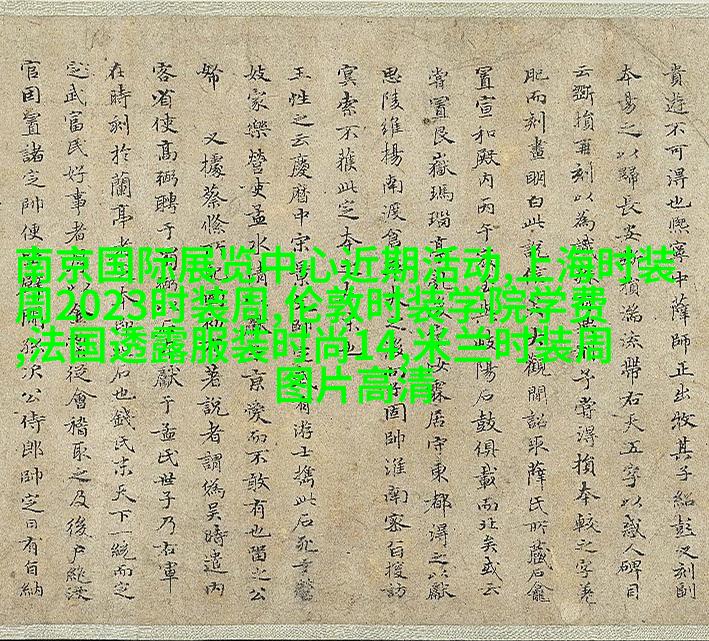 貴遊不可得也熙寧中薛師正出牧其子紹彭又刻副
本易之以歸長安損湍流帶右天五字以惑人碑目
云斲損刻以為識子嘗得損本較之字差
肥而刻畫明白此說大觀間詔取薛氏所藏石龕
置宣和殿內丙午岐陽石鼓俱載而北矣或云
嘗置艮嶽瑪瑙霖居守東都得之以獻
思陵維揚南渡倉之後固帥淮南密旨搜訪
冥索不獲此定本
王性之云慶曆中宋景帥有游士攜此石死
妓家樂營吏孟水清京愛而不敢有也留之公
帑 又據蔡絛著說者謂為吳時遣內
客省使高弼聘于獻于孟氏世子乃右軍
在時刻於蘭亭者石也錢氏末天下一統而定
定武富民好事者從會稽取之及後戶絕沒
官因置諸定帥便次公侍郎帥定日有自納
南京国际展览中心近期活动,上海时装
周2023时装周,伦敦时装学院学费
,法国透露服装时尚14,米兰时装周
图片高清